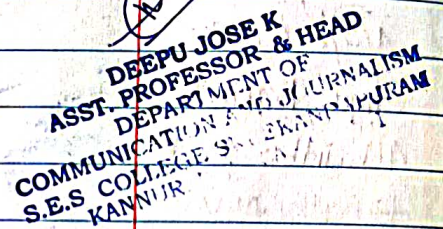 DEEPU JOSE K
ASST. PROFESSOR & HEAD
DEPARTMENT OF
COMMUNICATION AND JOURNALISM
S.E.S COLLEGE
KANNUR